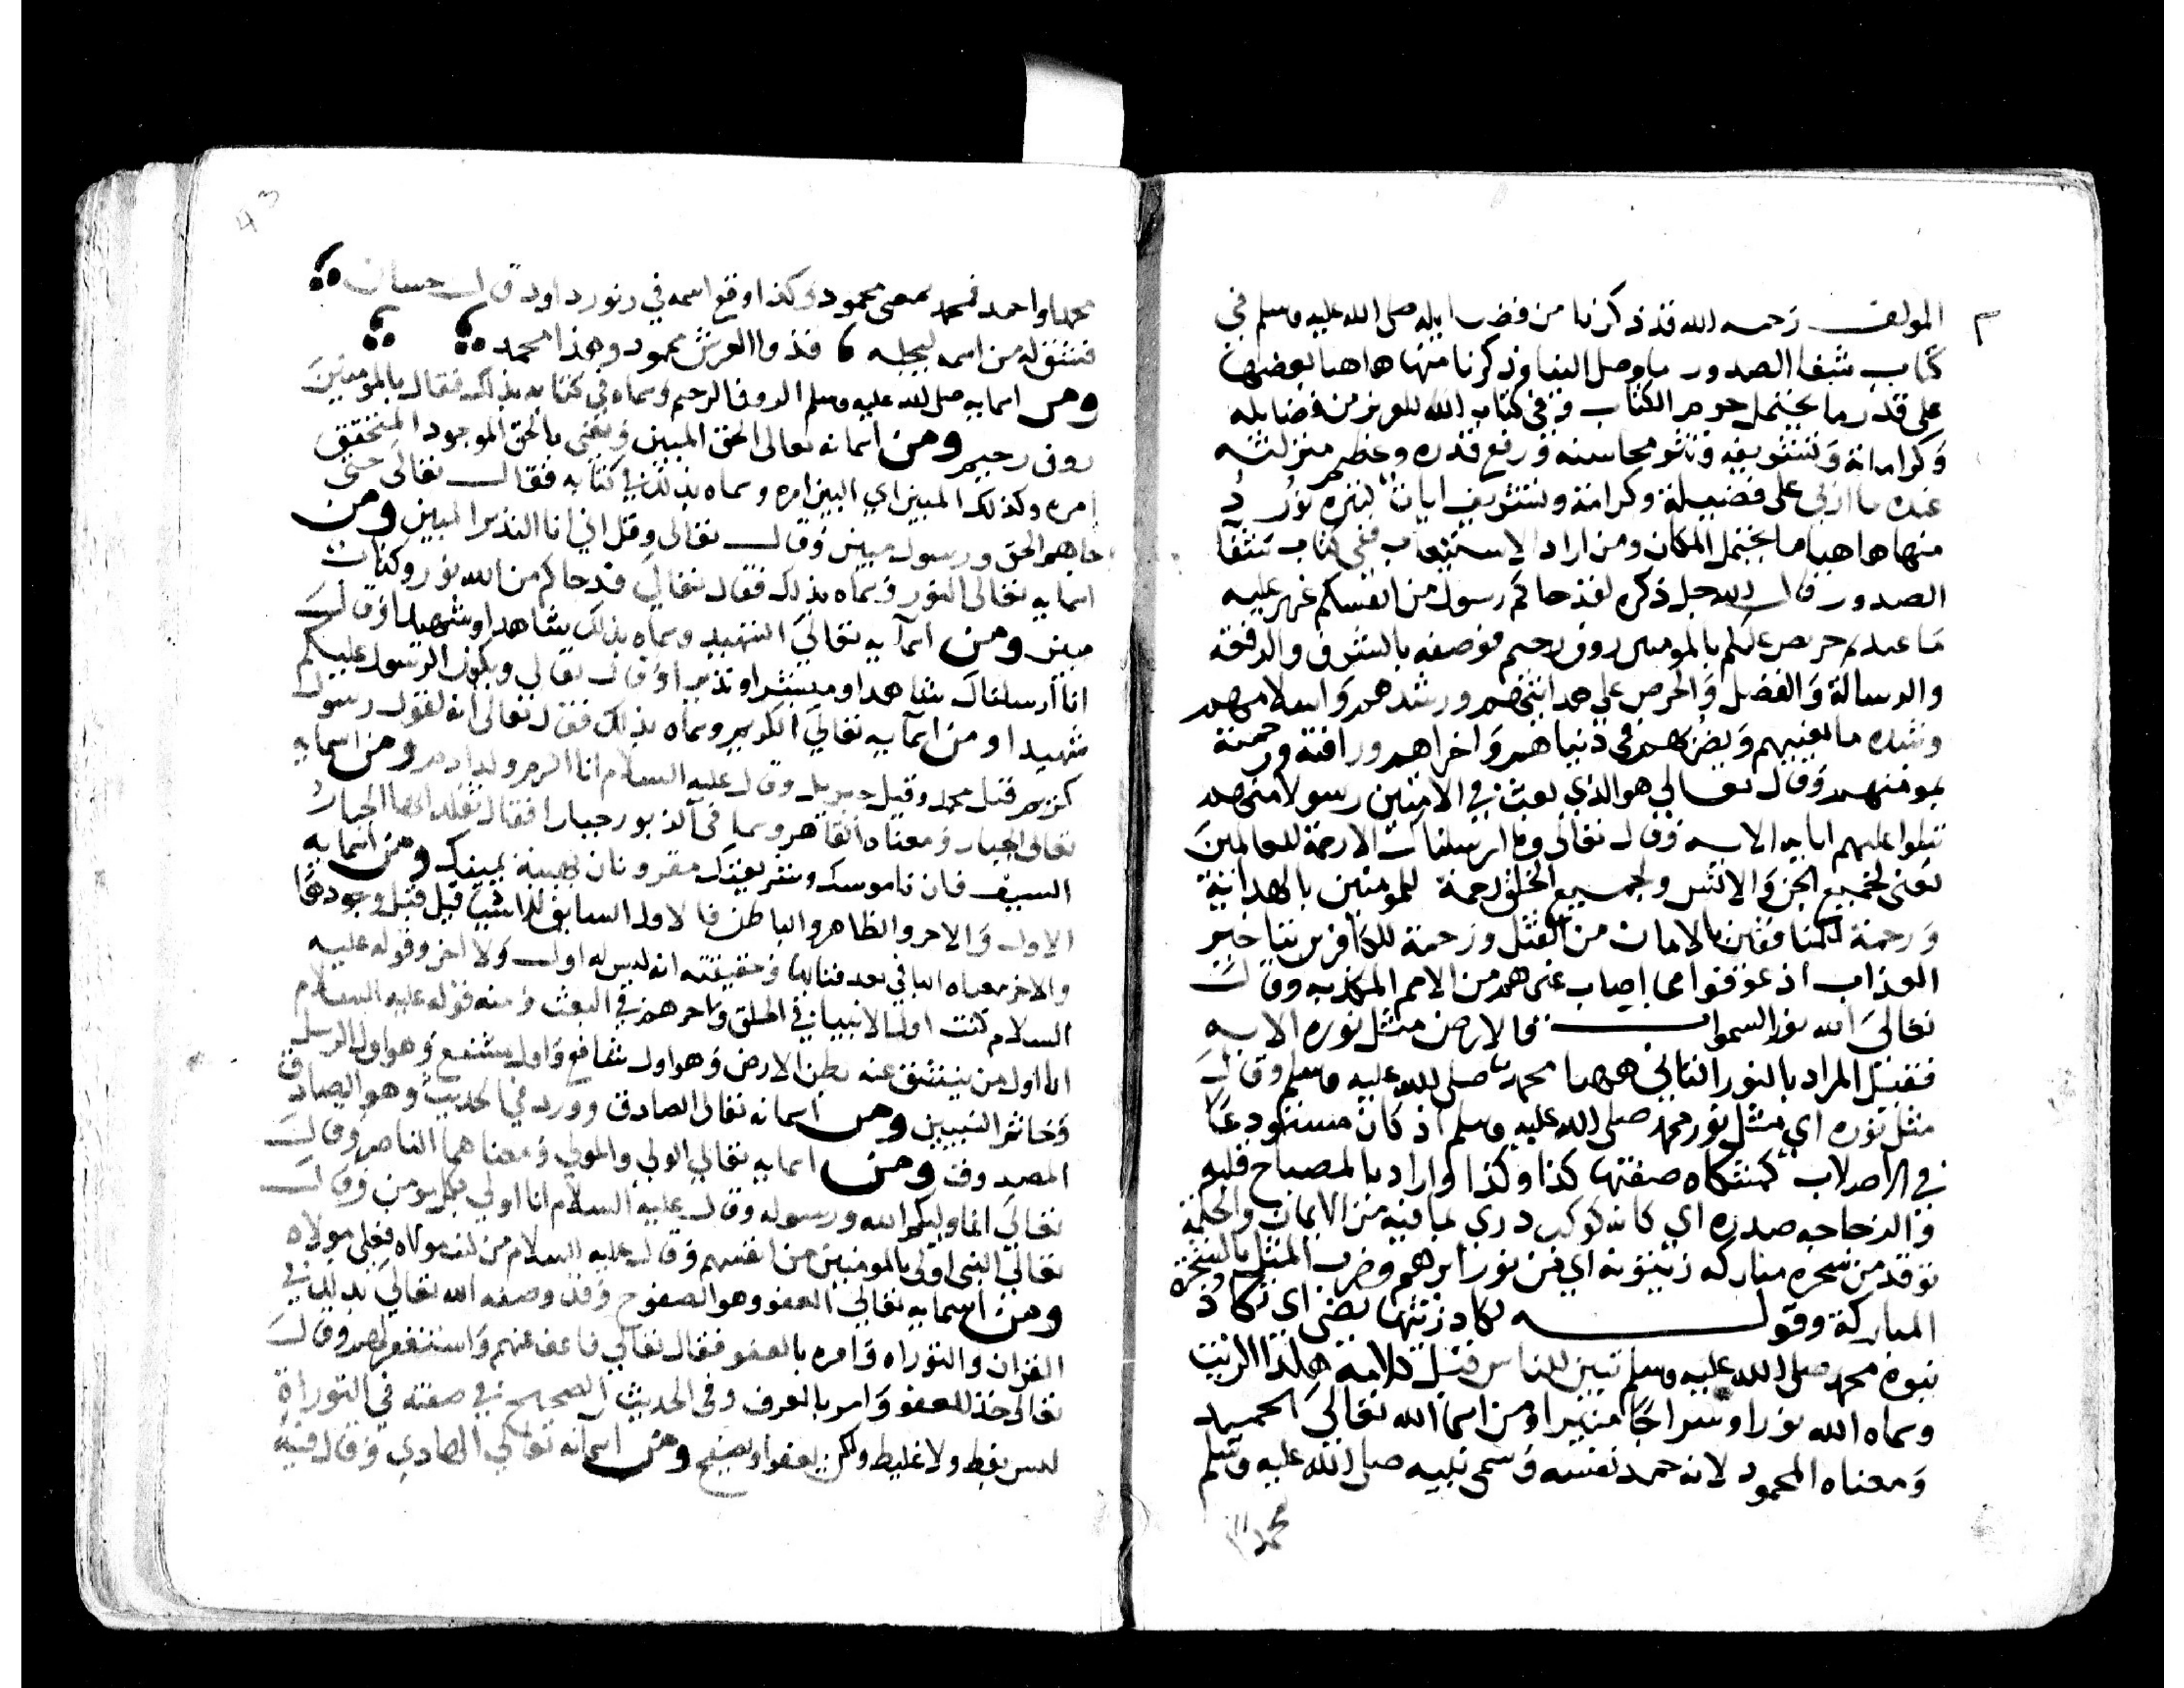 المولف رحمه الله قد ذكرنا من فضايله صلى الله عليه وسلم في
كتاب شفا الصدور ما وصل الينا وذكرنا منها هاهنا بعضها
على قدر ما يحتمل جرم الكتاب وفي كتاب الله العزيز من فضايله
وكراماته وتشريفه ونشر محاسنه ورفع قدره وعظم منزلته
عنده ما اربى على فضيلة وكرامة وتشريف ايات كثيره نورد
منها هاهنا ما يحتمل المكان ومن اراد الاستيعاب ففي كتاب شفا
الصدور قال الله جل ذكره لقد جاكم رسول من انفسكم عزيز عليه
ما عنتم حريص عليكم بالمومنين روف رحيم فوصفه بالشرف والرفعة
والرسالة والفضل والحرص على هدايتهم ورشدهم واسلامهم
وشده ما يعنتهم ويضرهم في دنياهم واخراهم ورافته ورحمته
بمومنهم وقال تعالى هو الذي بعث في الاميين رسولا منهم
يتلوا عليهم اياته الايه وقال تعالى وما ارسلناك الا رحمة للعالمين
يعنى لجميع الجن والانس ولجميع الخلق رحمة للمومنين بالهداية
ورحمة للمنافقين بالامان من القتل ورحمة للكافرين بتاخير
العذاب اذ عوفوا مما اصاب غيرهم من الامم المكذبه وقال
تعالى الله نور السموات والارض مثل نوره الايه
فقيل المراد بالنور الثاني ههنا محمد صلى الله عليه وسلم وقال
مثل نوره اي مثل نور محمد صلى الله عليه وسلم اذ كان مستودعا
في الاصلاب كمشكاه صفتها كذا وكذا واراد بالمصباح قلبه
والزجاجه صدره اي كانه كوكب دري لما فيه من الايمان والحكمة
توقد من شجره مباركه زيتونة اي من نور ابرهيم وضرب المثل بالشجرة
المباركة وقوله يكاد زيتها يضي اي تكاد
نبوة محمد صلى الله عليه وسلم تبين للناس قبل كلامه كهذا الزيت
وسماه الله نورا وسراجا منيرا ومن اسما الله تعالى الحميد
ومعناه المحمود لانه حمد نفسه وسمى نبيه صلى الله عليه وسلم
محمدا
43
محمدا واحمد فمحمد بمعنى محمود وكذا وقع اسمه في زبور داود قال حسان
فشق له من اسمه ليجله فذوا العرش محمود وهذا محمد
ومن اسمايه صلى الله عليه وسلم الروف الرحيم وسماه في كتابه بذلك فقال بالمومنين
روف رحيم ومن اسمائه تعالى الحق المبين ويعنى بالحق الموجود المتحقق
امره وكذلك المبين اي البين امره وسماه بذلك في كتابه فقال تعالى حتى
جاهم الحق ورسول مبين وقال تعالى وقل اني انا النذير المبين ومن
اسمايه تعالى النور وسماه بذلك فقال تعالى قد جاكم من الله نور وكتاب
مبين ومن اسمآيه تعالى الشهيد وسماه بذلك شاهدا وشهيدا وقال
انا ارسلناك شاهدا ومبشرا ونذيرا وقال تعالى ويكون الرسول عليكم
شهيدا ومن اسمآيه تعالى الكريم وسماه بذلك فقال تعالى انه لقول رسول
كريم قيل محمد وقيل جبريل وقال عليه السلام انا اكرم ولد ادم ومن اسمايه
تعالى الجبار ومعناه القاهر وسما في الزبور جبارا فقال تقلد ايها الجبار
السيف فان ناموسك وشريعتك مقرونان بهيبة يمينك ومن اسمايه
الاول والاخر والظاهر والباطن فالاول السابق للاشيا قبل وجودها
والاخر معناه الباقي بعد فنايها وحقيقته انه ليس له اول ولا اخر وقوله عليه
السلام كنت اول الانبيا في الخلق واخرهم في البعث ومنه قوله عليه السلام
انا اول من ينشق عنه بطن الارض وهو اول شافع واول مشفع وهو اول الرسل
وخاتم النبيين ومن اسمائه تعالى الصادق وورد في الحديث وهو الصادق
المصدوق ومن اسمايه تعالى الولي والمولي ومعناهما الناصر وقال
تعالى انما وليكم الله ورسوله وقال عليه السلام انا اولي بكل مومن وقال
تعالى النبي اولى بالمومنين من انفسهم وقال عليه السلام من كنت مولاه فعلي مولاه
ومن اسمايه تعالى العفو وهو الصفوح وقد وصفه الله تعالى بذلك في
القران والتوراه وامره بالعفو فقال تعالى فاعف عنهم واستغفر لهم وقال
تعالى خذ العفو وامر بالعرف وفي الحديث الصحيح في صفته في التوراة
ليس بفظ ولا غليظ ولكن يعفوا ويصفح ومن اسمائه تعالى الهادي وقال فيه